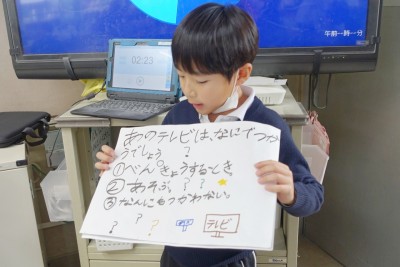 午前一時一分
02:23
あのテレビは、なにでつか
うでしょう ?
①べんきょうするとき、
②あそぶ。??
③なんにもつかわない。
? ? ? テレビ